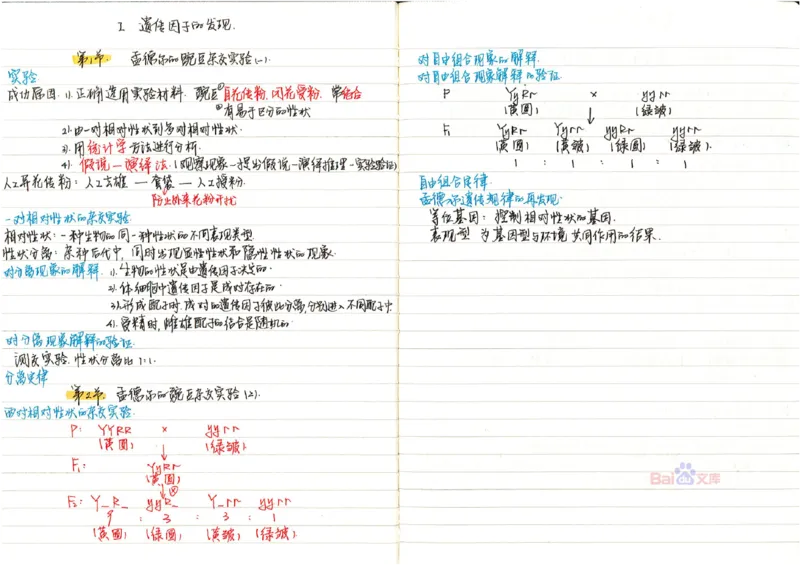 I 遗传因子的发现.
第1节. 孟德尔的豌豆杂交实验(一).
实验
成功原因. 1).正确选用实验材料. 豌豆 ①自花传粉,闭花受粉.
②有易于区分的性状
2).由一对相对性状到多对相对性状.
3).用统计学方法进行分析.
4). 假说—演绎法.(观察现象—提出假说—演绎推理—实验验证)
人工异花传粉: 人工去雄 — 套袋 — 人工授粉.
防止外来花粉干扰
一对相对性状的杂交实验
相对性状: 一种生物的同一种性状的不同表现类型.
性状分离: 杂种后代中, 同时出现显性性状和隐性性状的现象.
对分离现象的解释 1).生物的性状是由遗传因子决定的.
2).体细胞中遗传因子是成对存在的.
3).形成配子时,成对的遗传因子彼此分离,分别进入不同配子中.
4).受精时,雌雄配子的结合是随机的
对分离现象解释的验证.
测交实验. 性状分离比 1:1.
分离定律
第2节. 孟德尔的豌豆杂交实验(2).
两对相对性状的杂交实验.
P: YYRR × yyrr
(黄圆) (绿皱).
F₁: YyRr
(黄圆)
F₂: Y_R_ yyR_ Y_rr yyrr
9 : 3 : 3 : 1
(黄圆) (绿圆) (黄皱) (绿皱).
对自由组合现象的解释.
对自由组合现象解释的验证.
P YyRr × yyrr
(黄圆) (绿皱)
F₁ YyRr Yyrr yyRr yyrr
(黄圆) (黄皱) (绿圆) (绿皱).
1 : 1 : 1 : 1
自由组合定律.
孟德尔遗传规律的再发现.
等位基因: 控制相对性状的基因.
表现型 为基因型与环境共同作用的结果.
Bai du 文库